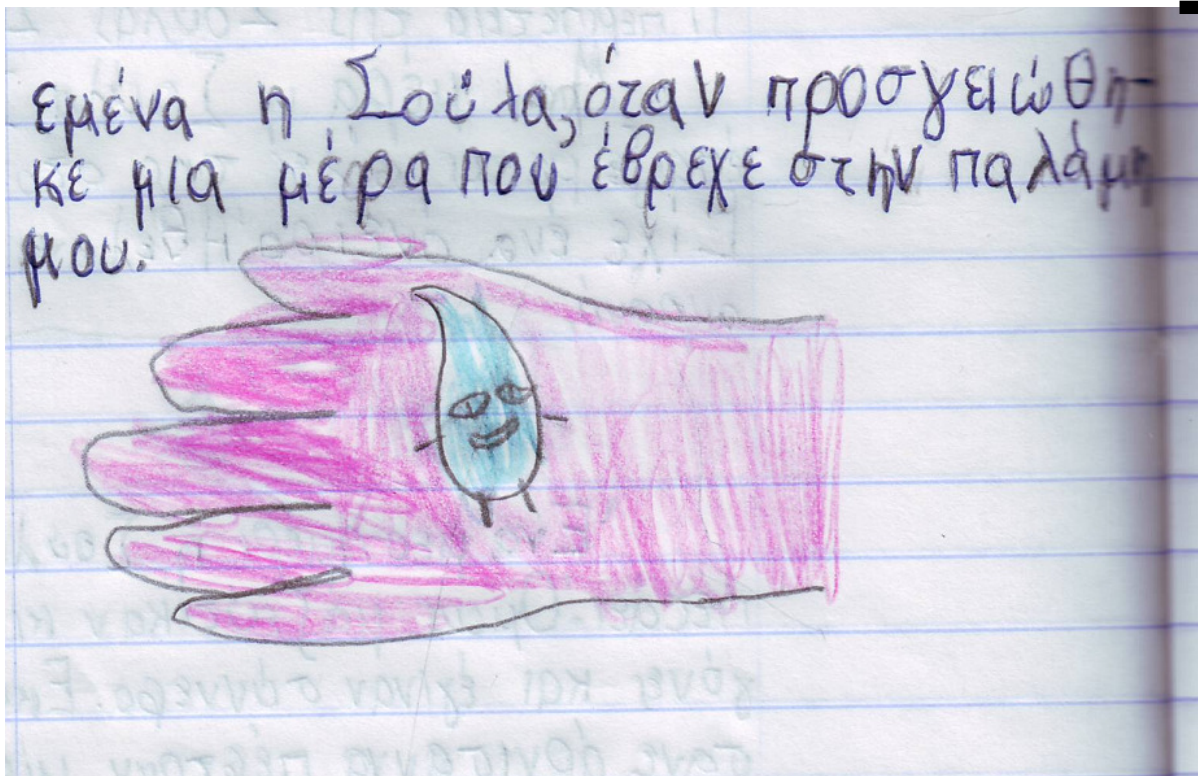 εμένα η Σούλα, όταν προσγειώθη-
κε μια μέρα που έβρεχε στην παλάμη
μου.